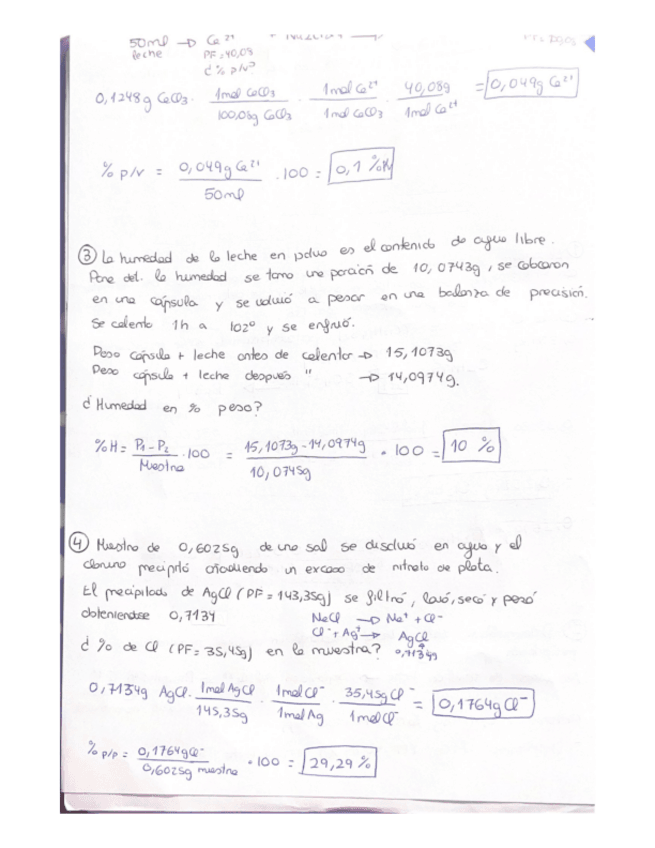 50ml → Ca²⁺
leche PF=40,03
¿% p/v?
0,1248g CaCO₃ · 1mol CaCO₃ / 100,08g CaCO₃ · 1mol Ca²⁺ / 1mol CaCO₃ · 40,08g / 1mol Ca²⁺ = 0,049g Ca²⁺
% p/v = 0,049g Ca²⁺ / 50ml · 100 = 0,1 %
③ La humedad de la leche en polvo es el contenido de agua libre.
Para det. la humedad se tomo una porción de 10,0743g, se colocaron
en una cápsula y se volvió a pesar en una balanza de precisión.
Se calento 1h a 102º y se enfrió.
Peso cápsula + leche antes de calentar → 15,1073g
Peso cápsula + leche después " → 14,0974g.
¿Humedad en % peso?
%H = P₁-P₂ / Muestra · 100 = 15,1073g-14,0974g / 10,0745g · 100 = 10 %
④ Muestra de 0,6025g de una sal se disolvió en agua y el
cloruro precipitó añadiendo un exceso de nitrato de plata.
El precipitado de AgCl (PF = 143,35g) se filtró, lavó, secó y pesó
obteniendose 0,7134
NaCl → Na⁺ + Cl⁻
Cl⁻ + Ag⁺ → AgCl
¿% de Cl (PF= 35,45g) en la muestra? 0,7134g
0,7134g AgCl · 1mol AgCl / 145,35g · 1mol Cl⁻ / 1mol Ag · 35,45g Cl⁻ / 1mol Cl⁻ = 0,1764g Cl⁻
% p/p = 0,1764g Cl⁻ / 0,6025g muestra · 100 = 29,29 %